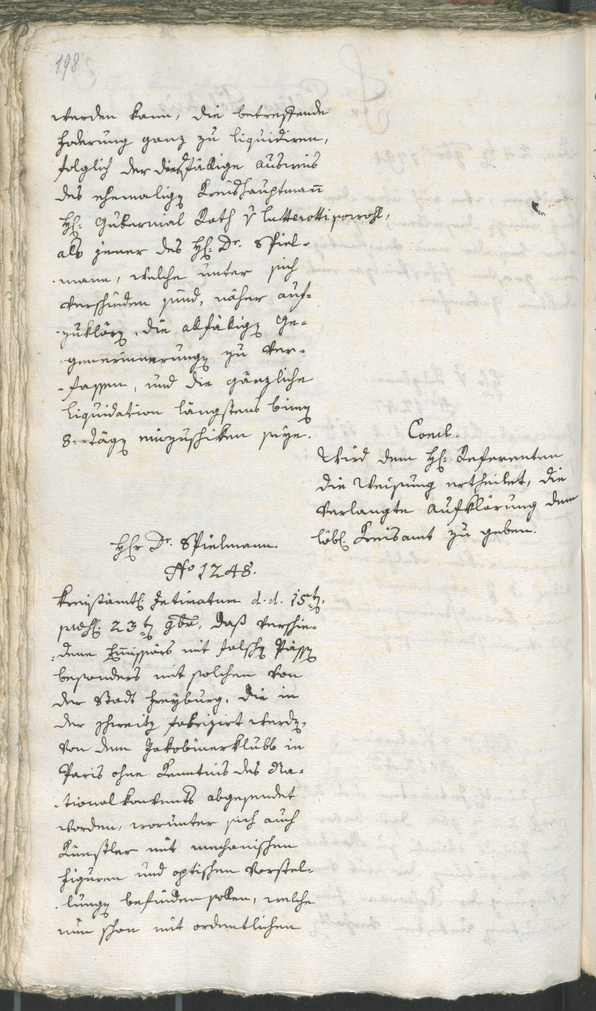 198
werden kann, die betreffende
Foderung ganz zu liquidiren,
folglich der diesfällige Ausweis
des ehemalign Kreishauptmann
H: Gubernial Rath v Lutterotti sowohl,
als jener des H: Dr. Spiel-
-mann, welche unter sich
verschieden sind, näher auf-
-zuklärn, die allfälign Ge-
-generinnerungn zu ver-
-fassen, und die gänzliche
Liquidation längstens binn
8. Tägn einzuschiken seye.
Concl.
Wird dem H: Referenten
die Weisung ertheilet, die
verlangte Aufklärung dem
löbl. Kreisamt zu geben.
H: Dr. Spielmann.
No 1248.
Kreisämtl Intimatum d. d. 15tn,
23tn 9br, daß verschie-
-dene Emissärs mit falschn Pässn
besonders mit solchen von
der Stadt Freyburg, die in
der Schweitz fabrizirt werdn,
von dem Jakobinerklubb in
Paris ohne Kenntnis des Na-
-tionalkonvents abgesendet
worden, worunter sich auch
Künstler mit mechanischen
Figuren und optischen Vorstel-
-lungn befinden sollen, welche
nun schon mit ordentlichen